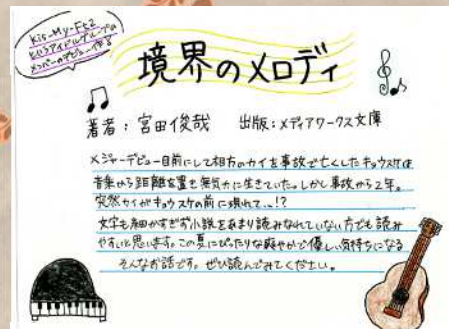 Kis-My-Ft2
というアイドルグループの
メンバーのデビュー作る
境界のメロディ
著者：宮田俊哉　出版：メディアワークス文庫
メジャーデビュー目前にして相方のカイを事故で亡くしたキョウスケは
音楽から距離を置き無気力に生きていた。しかし事故から2年。
突然カイがキョウスケの前に現れて…!?
文字も細かすぎず小説をあまり読みなれていない方でも読み
やすいと思います。この夏にぴったりな爽やかで優しい気持ちになる
そんなお話です。ぜひ読んでみてください。